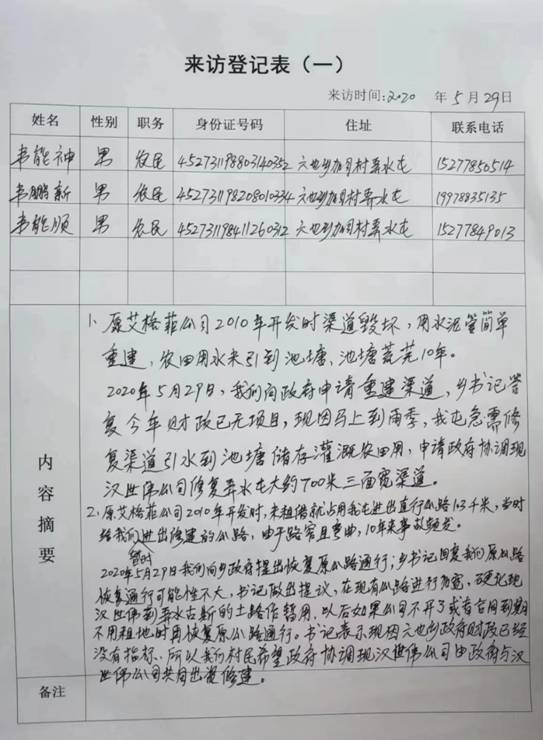 来访登记表（一）
来访时间:2020 年5月29日
姓名 性别 职务 身份证号码 住址 联系电话
韦能神 男 农民 452731198803140352 六也乡加司村弄水屯 15277850514
韦鹏新 男 农民 452731198208010334 六也乡加司村弄水屯 19978835135
韦能顺 男 农民 452731198411260312 六也乡加司村弄水屯 15277849013
内容摘要
1、原艾格菲公司2010年开发时渠道毁坏，用水泥管简单
重建，农田用水未引到池塘，池塘荒芜10年。
2020年5月29日，我们向政府申请重建渠道，乡书记答
复今年财政已无项目，现因马上到雨季，我屯急需修
复渠道引水到池塘储存灌溉农田用，申请政府协调现
汉世伟公司修复弄水屯大约700米三面宽渠道。
2、原艾格菲公司2010年开发时，未租借就占用我屯进出直行公路1.3千米，当时
给我们暂时进出修建的公路，由于路窄且弯曲，10年来事故频发。
2020年5月29日我们向乡政府提出恢复原公路通行；乡书记回复我们原公路
恢复通行可能性不大，书记做出提议，在现有公路进行加宽，硬化现
汉世伟到弄水古新的土路作替用，以后如果公司不开了或者合同到期
不用租地时再恢复原公路通行。书记表示现因六也乡政府财政已经
没有指标，所以我们村民希望政府协调现汉世伟公司由政府与汉
世伟公司共同出资修建。
备注